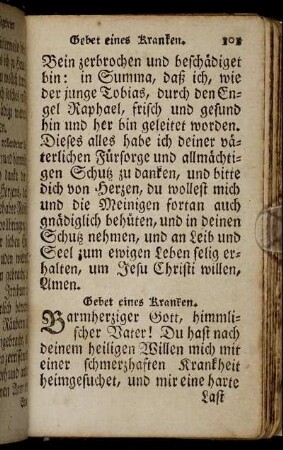 Gebet eines Kranken. 101
Bein zerbrochen und beschädiget
bin: in Summa, daß ich, wie
der junge Tobias, durch den En-
gel Raphael, frisch und gesund
hin und her bin geleitet worden.
Dieses alles habe ich deiner vä-
terlichen Fürsorge und allmächti-
gen Schutz zu danken, und bitte
dich von Herzen, du wollest mich
und die Meinigen fortan auch
gnädiglich behüten, und in deinen
Schutz nehmen, und an Leib und
Seel zum ewigen Leben selig er-
halten, um Jesu Christi willen,
Amen.
Gebet eines Kranken.
Barmherziger Gott, himmli-
scher Vater! Du hast nach
deinem heiligen Willen mich mit
einer schmerzhaften Krankheit
heimgesuchet, und mir eine harte
Last